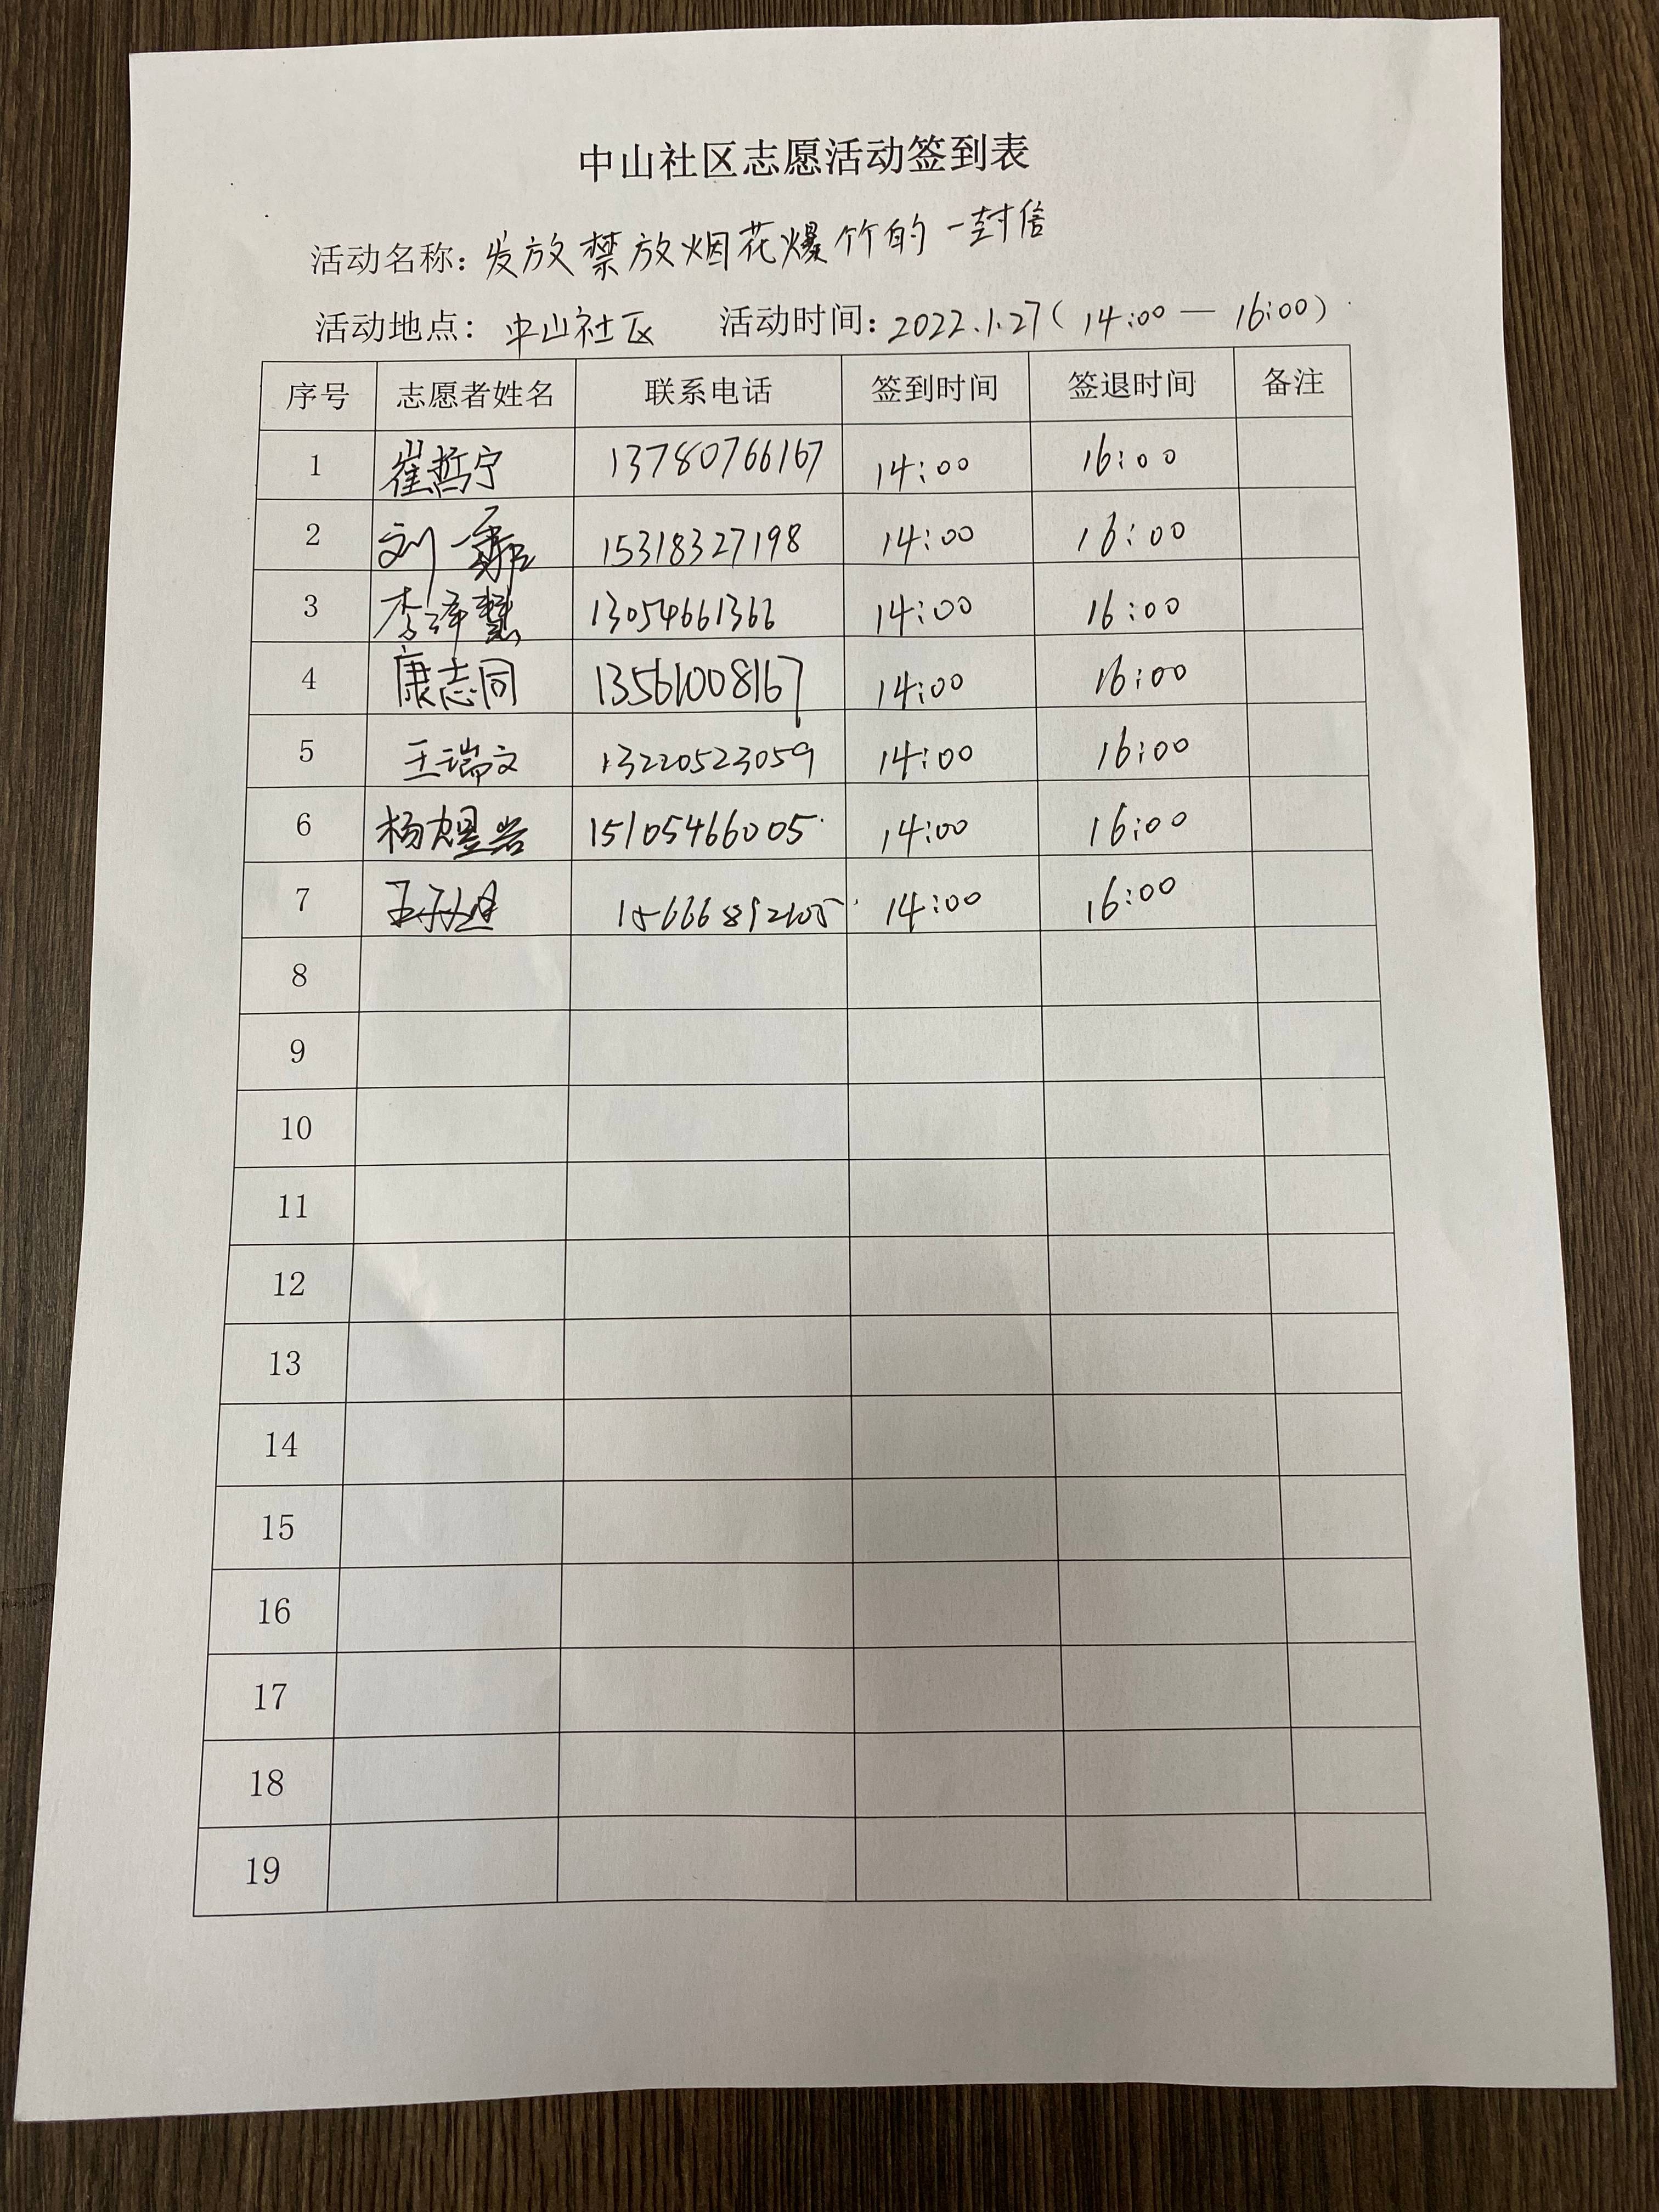 中山社区志愿活动签到表
活动名称: 发放禁放烟花爆竹的一封信
活动地点: 中山社区 活动时间: 2022.1.27( 14:00 — 16:00)
序号 志愿者姓名 联系电话 签到时间 签退时间 备注
1 崔哲宁 13780766167 14:00 16:00
2 刘一 15318327198 14:00 16:00
3 李泽慧 13054661366 14:00 16:00
4 康志同 13561008167 14:00 16:00
5 王瑞文 13220523059 14:00 16:00
6 杨煜岩 15105466005 14:00 16:00
7 王子 15666892105 14:00 16:00
8
9
10
11
12
13
14
15
16
17
18
19